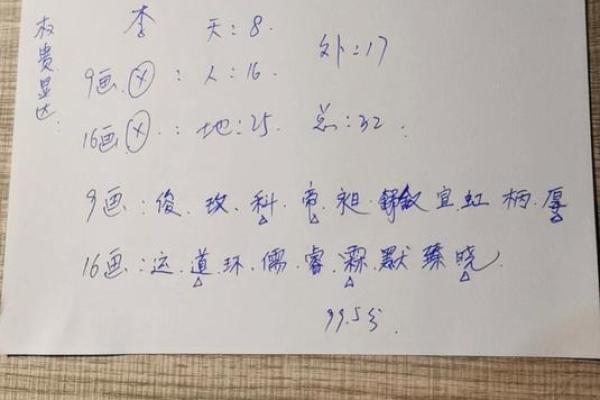 权贵显达
李 天:8. 外:17
9画(×):人:16
16画(×):地:25. 总:32.
9画:俊.玫.科.帝.昶.叙宜.虹柄.厚
16画:运.道.环.儒.睿.霖.默臻晓
99.5分.